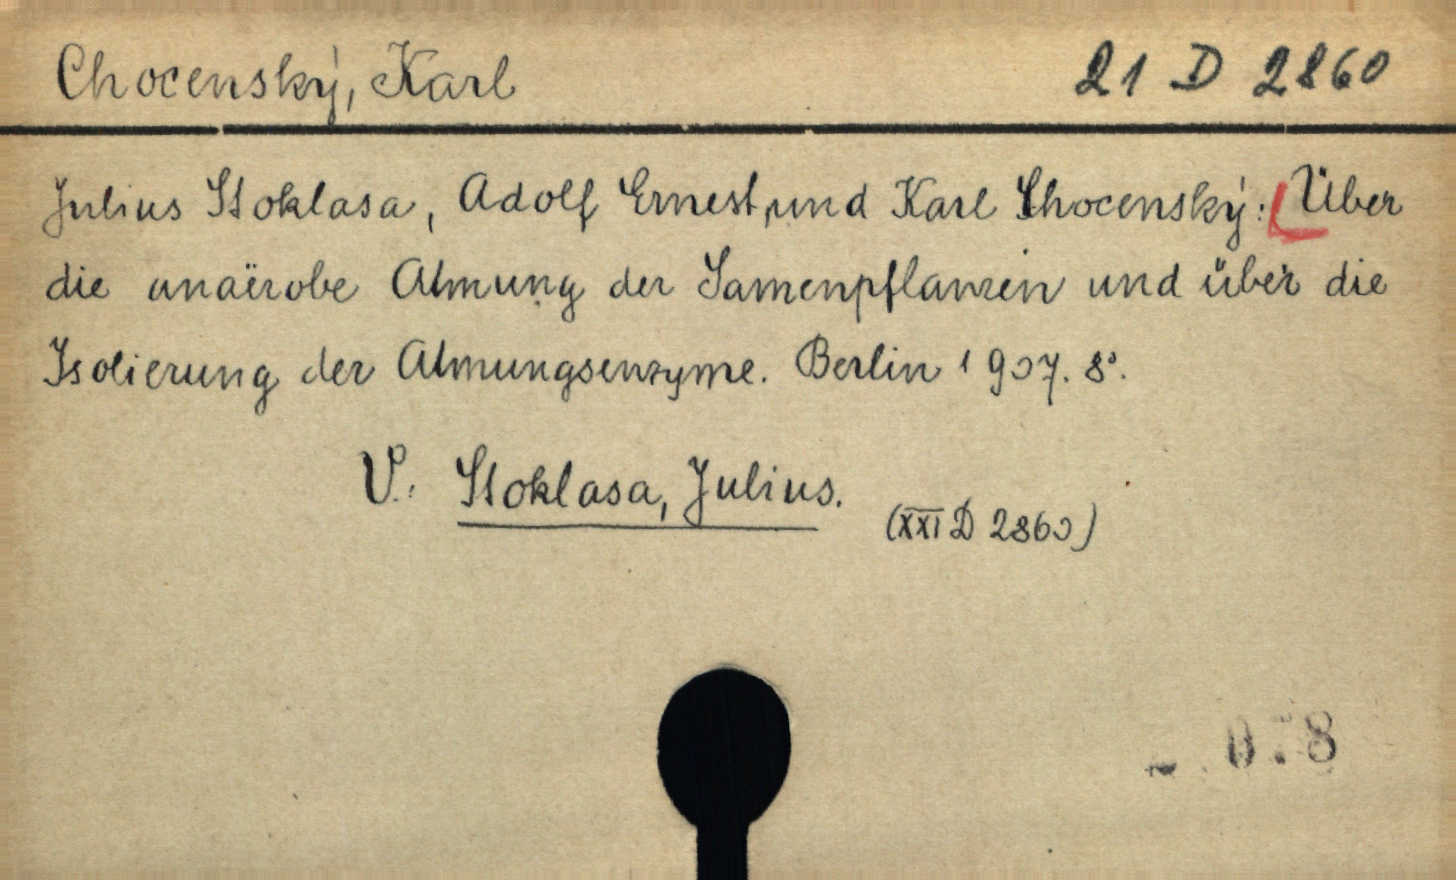 Chocenský, Karl 21 D 2860
Julius Stoklasa, Adolf Ernest, und Karl Chocenský: Über
die anaërobe Atmung der Samenpflanzen und über die
Isolierung der Atmungsenzyme. Berlin 1907. 8°.
V.: Stoklasa, Julius.
(XXI D 2860)